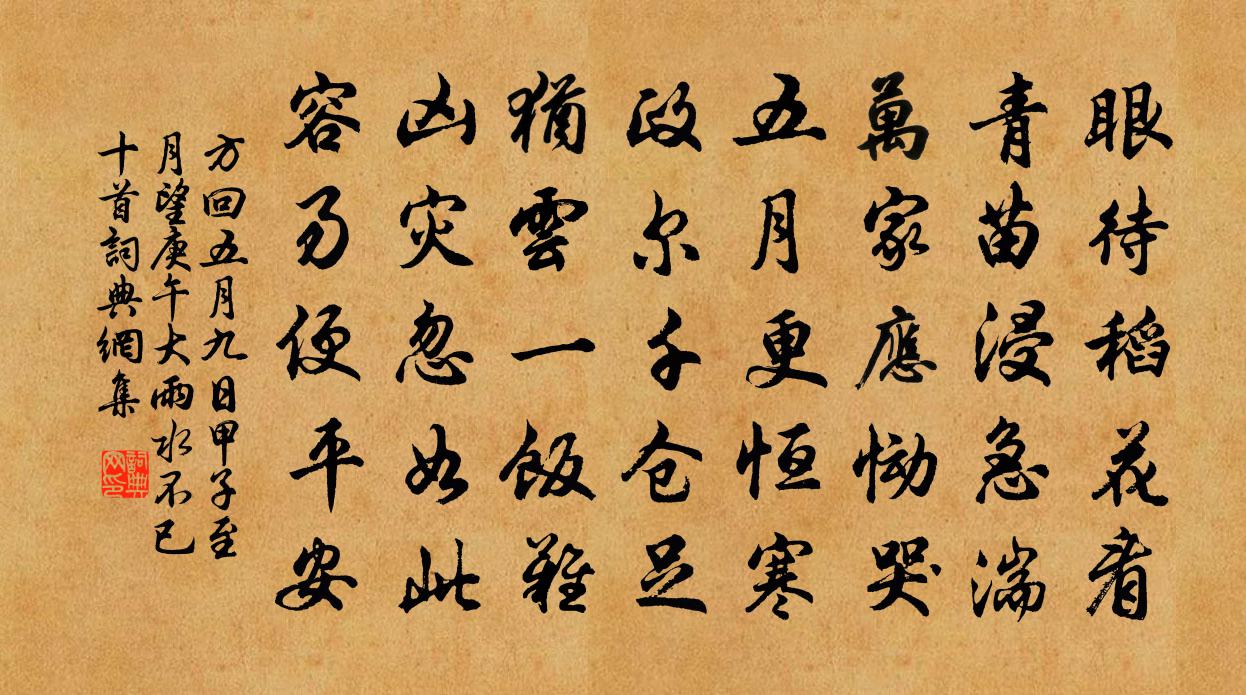 眼待稻花看
青苗浸急湍
萬家應恸哭
五月更恒寒
政尔千仓足
猶雲一飯難
凶灾忽如此
容易便平安
方回五月九日甲子至
月望庚午大雨水不已
十首詞典網集
詞典网印